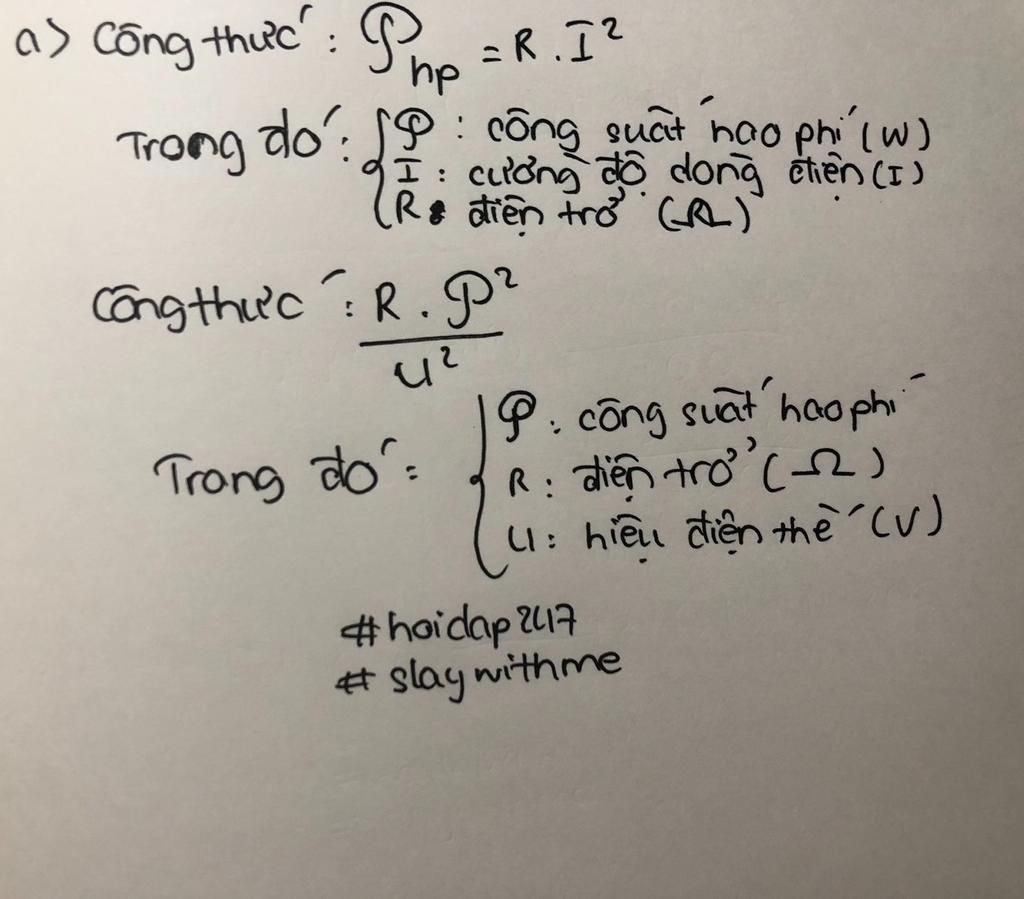 a) Công thức: 𝒫hp = R . I²
Trong đó: { 𝒫 : công suất hao phí (W)
I : cường độ dòng điện (I)
R : điện trở (Ω)
Công thức : R . 𝒫²
U²
Trong đó : { 𝒫 : công suất hao phí
R : điện trở (Ω)
U : hiệu điện thế (V)
#hoidap247
#slaywithme